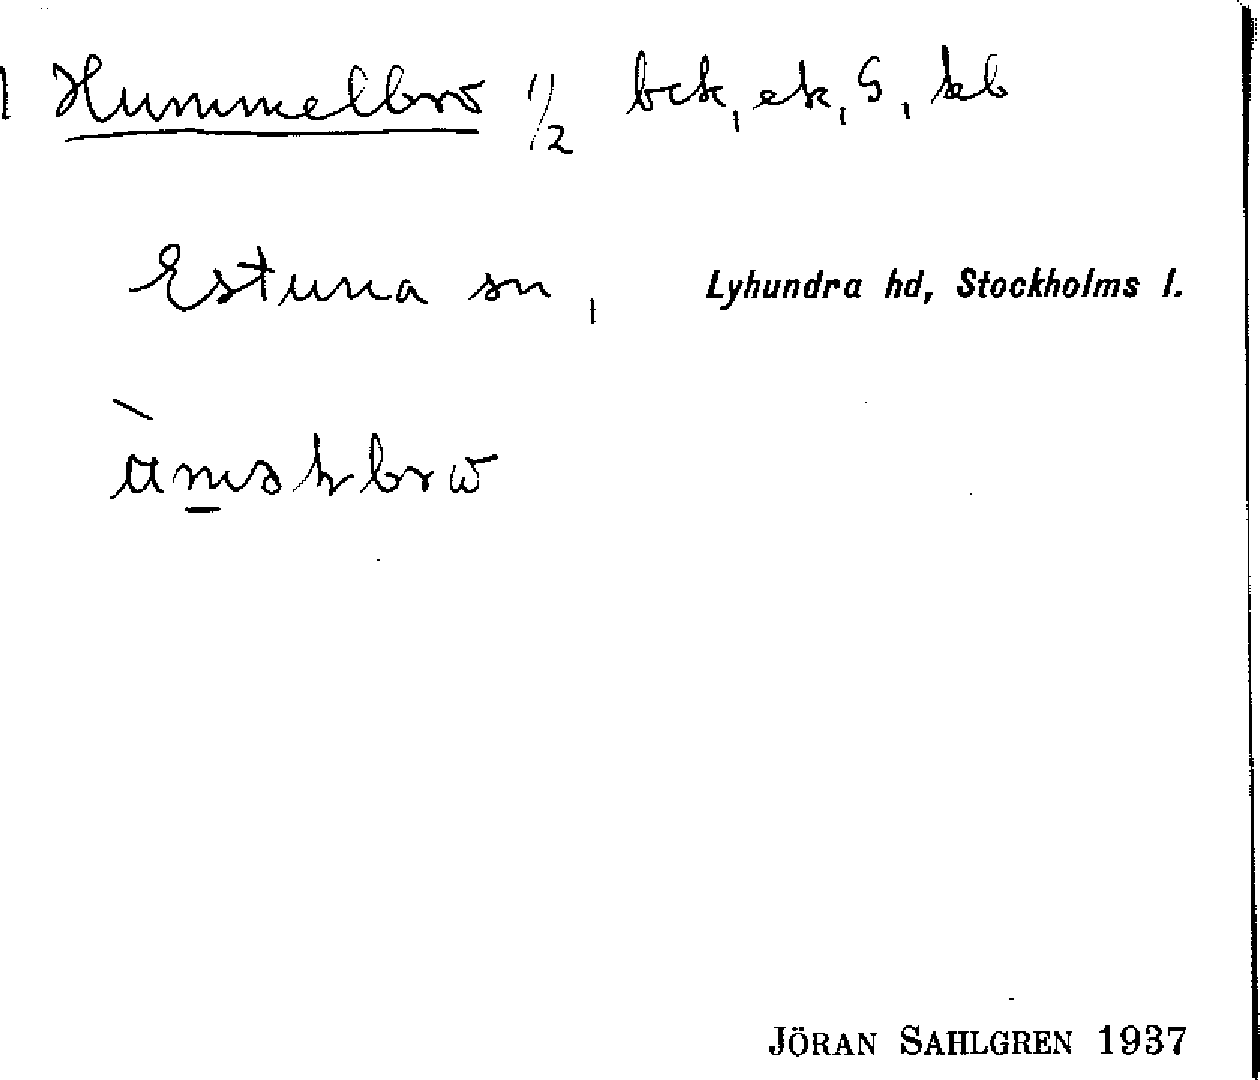 Hummelbro 1/2 bck, ek, S, kb
Estuna sn, Lyhundra hd, Stockholms l.
JÖRAN SAHLGREN 1937